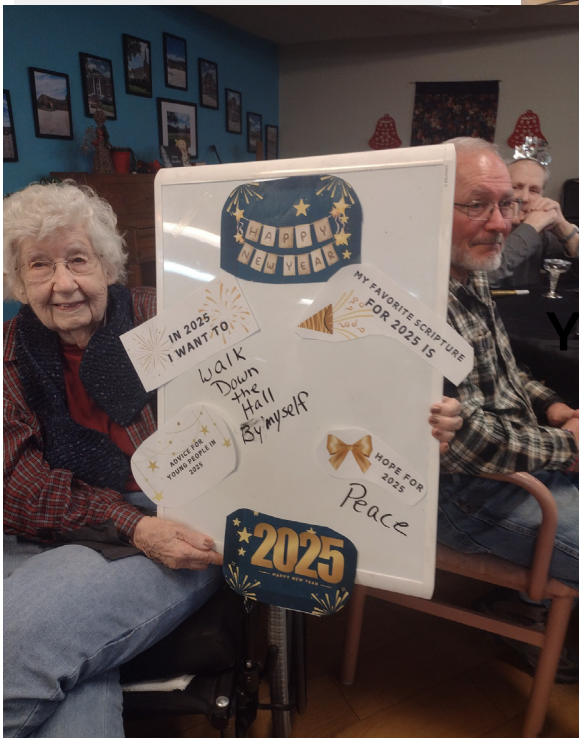 HAPPY
NEW YEAR
IN 2025
I WANT TO
Walk
Down
the
Hall
By myself
MY FAVORITE SCRIPTURE
FOR 2025 IS
ADVICE FOR
YOUNG PEOPLE IN
2025
HOPE FOR
2025
Peace
2025
HAPPY NEW YEAR
Y